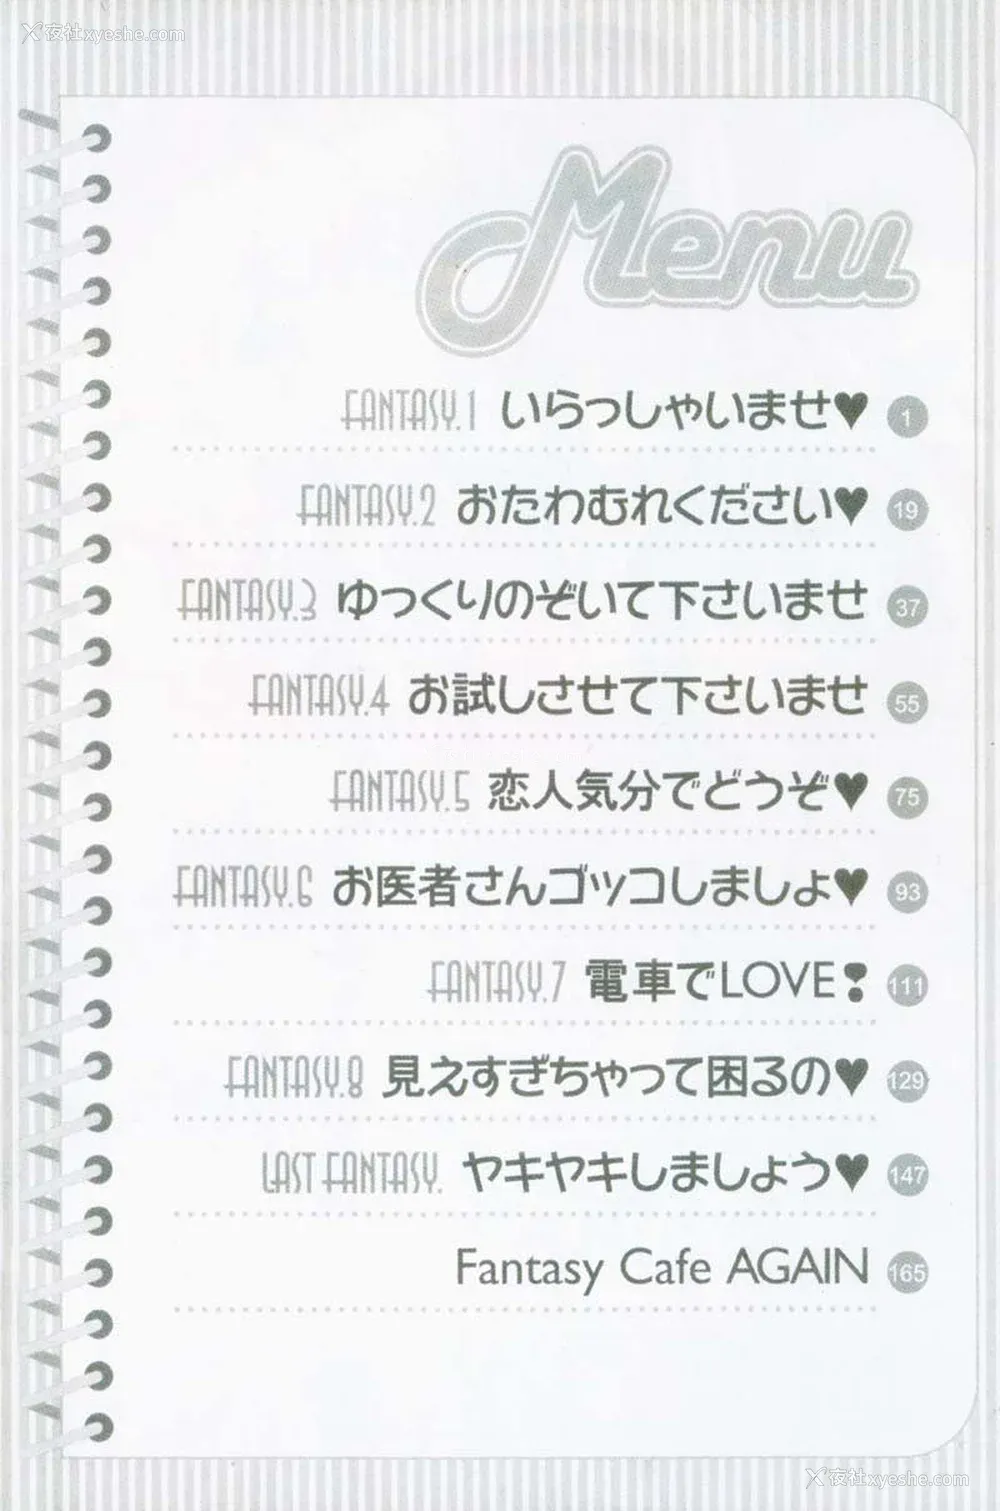 夜社xyeshe.com
Menu
FANTASY.1 いらっしゃいませ♥ 1
FANTASY.2 おたわむれください♥ 19
FANTASY.3 ゆっくりのぞいて下さいませ 37
FANTASY.4 お試しさせて下さいませ 55
FANTASY.5 恋人気分でどうぞ♥ 75
FANTASY.6 お医者さんゴッコしましょ♥ 93
FANTASY.7 電車でLOVE❣ 111
FANTASY.8 見えすぎちゃって困るの♥ 129
LAST FANTASY. ヤキヤキしましょう♥ 147
Fantasy Cafe AGAIN 165
夜社xyeshe.com